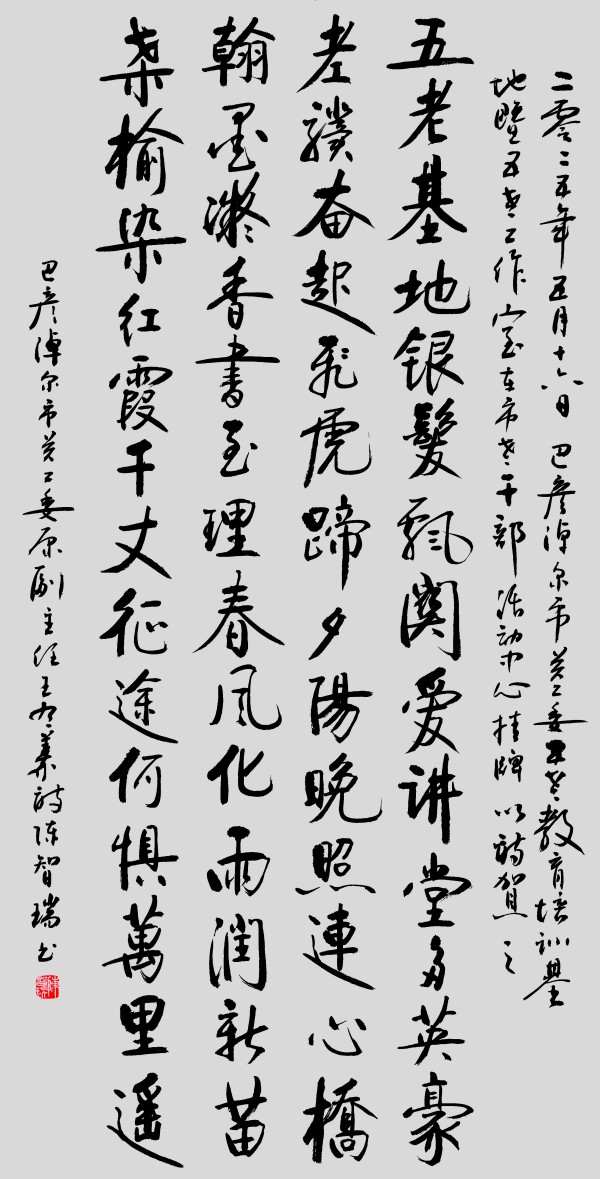 二零二五年五月十六日巴彦淖尔市关工委五老教育培训基
地暨五老工作室在市老干部活动中心挂牌以诗贺之
五老基地银髮飘関爱讲堂多英豪
老骥奋起飞虎蹄夕陽晚照連心橋
翰墨凝香書至理春風化雨潤新苗
桑榆染红霞千丈征途何惧萬里遥
巴彦淖尔市关工委原副主任王義诗陈智瑞书